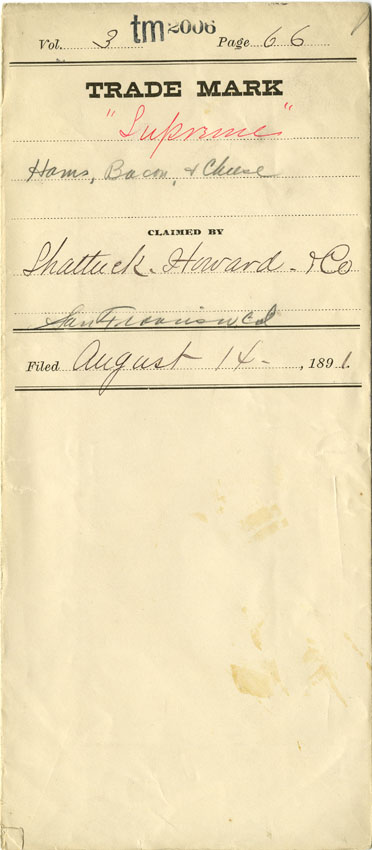 Vol. 3 tm2006 Page 66
TRADE MARK
"Supreme"
Hams, Bacon, & Cheese
CLAIMED BY
Shattuck. Howard. & Co
San Francisco Cal
Filed August 14 - , 1891.